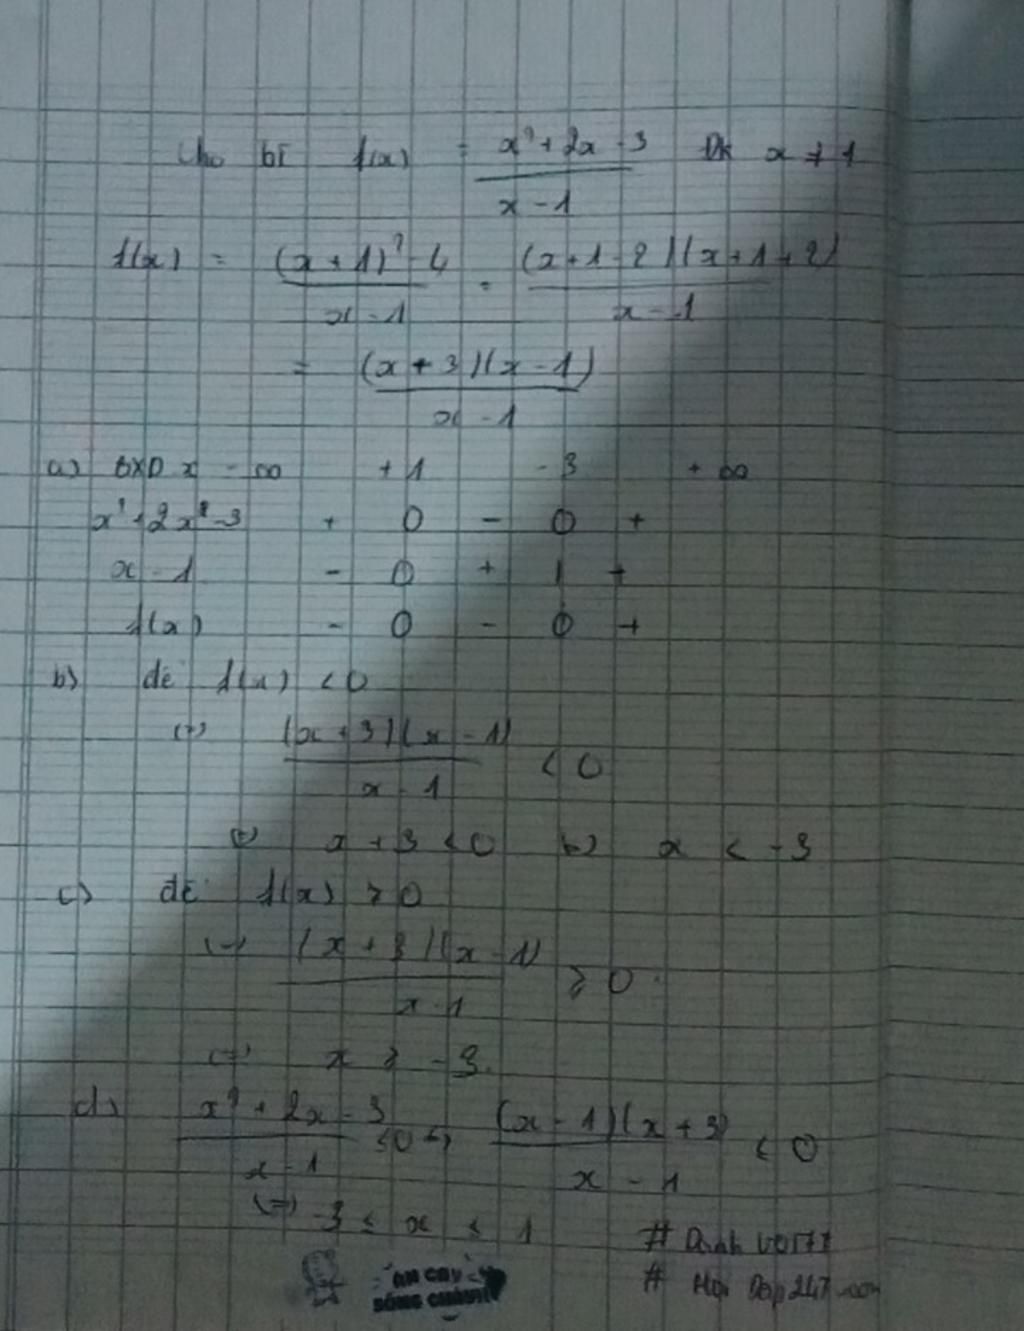 Cho bt f(x) = x²+2x-3 / x-1 Đk x ≠ 1
f(x) = (x+1)²-4 / x-1 = (x+1-2)(x+1+2) / x-1
= (x+3)(x-1) / x-1
a) BXD x -∞ +1 -3 +∞
x²+2x²-3 + 0 - 0 +
x-1 - 0 + | +
f(x) - 0 - 0 +
b) để f(x) < 0
(=) (x+3)(x-1) / x-1 < 0
(=) x+3 < 0 (=) x < -3
c) để f(x) ≥ 0
(=) (x+3)(x-1) / x-1 ≥ 0
(=) x ≥ -3
d) x²+2x-3 / x-1 ≤ 0 (=) (x-1)(x+3) / x-1 < 0
(=) -3 ≤ x ≤ 1
# Hoi Dap247.com
ĂN CAY
SỐNG